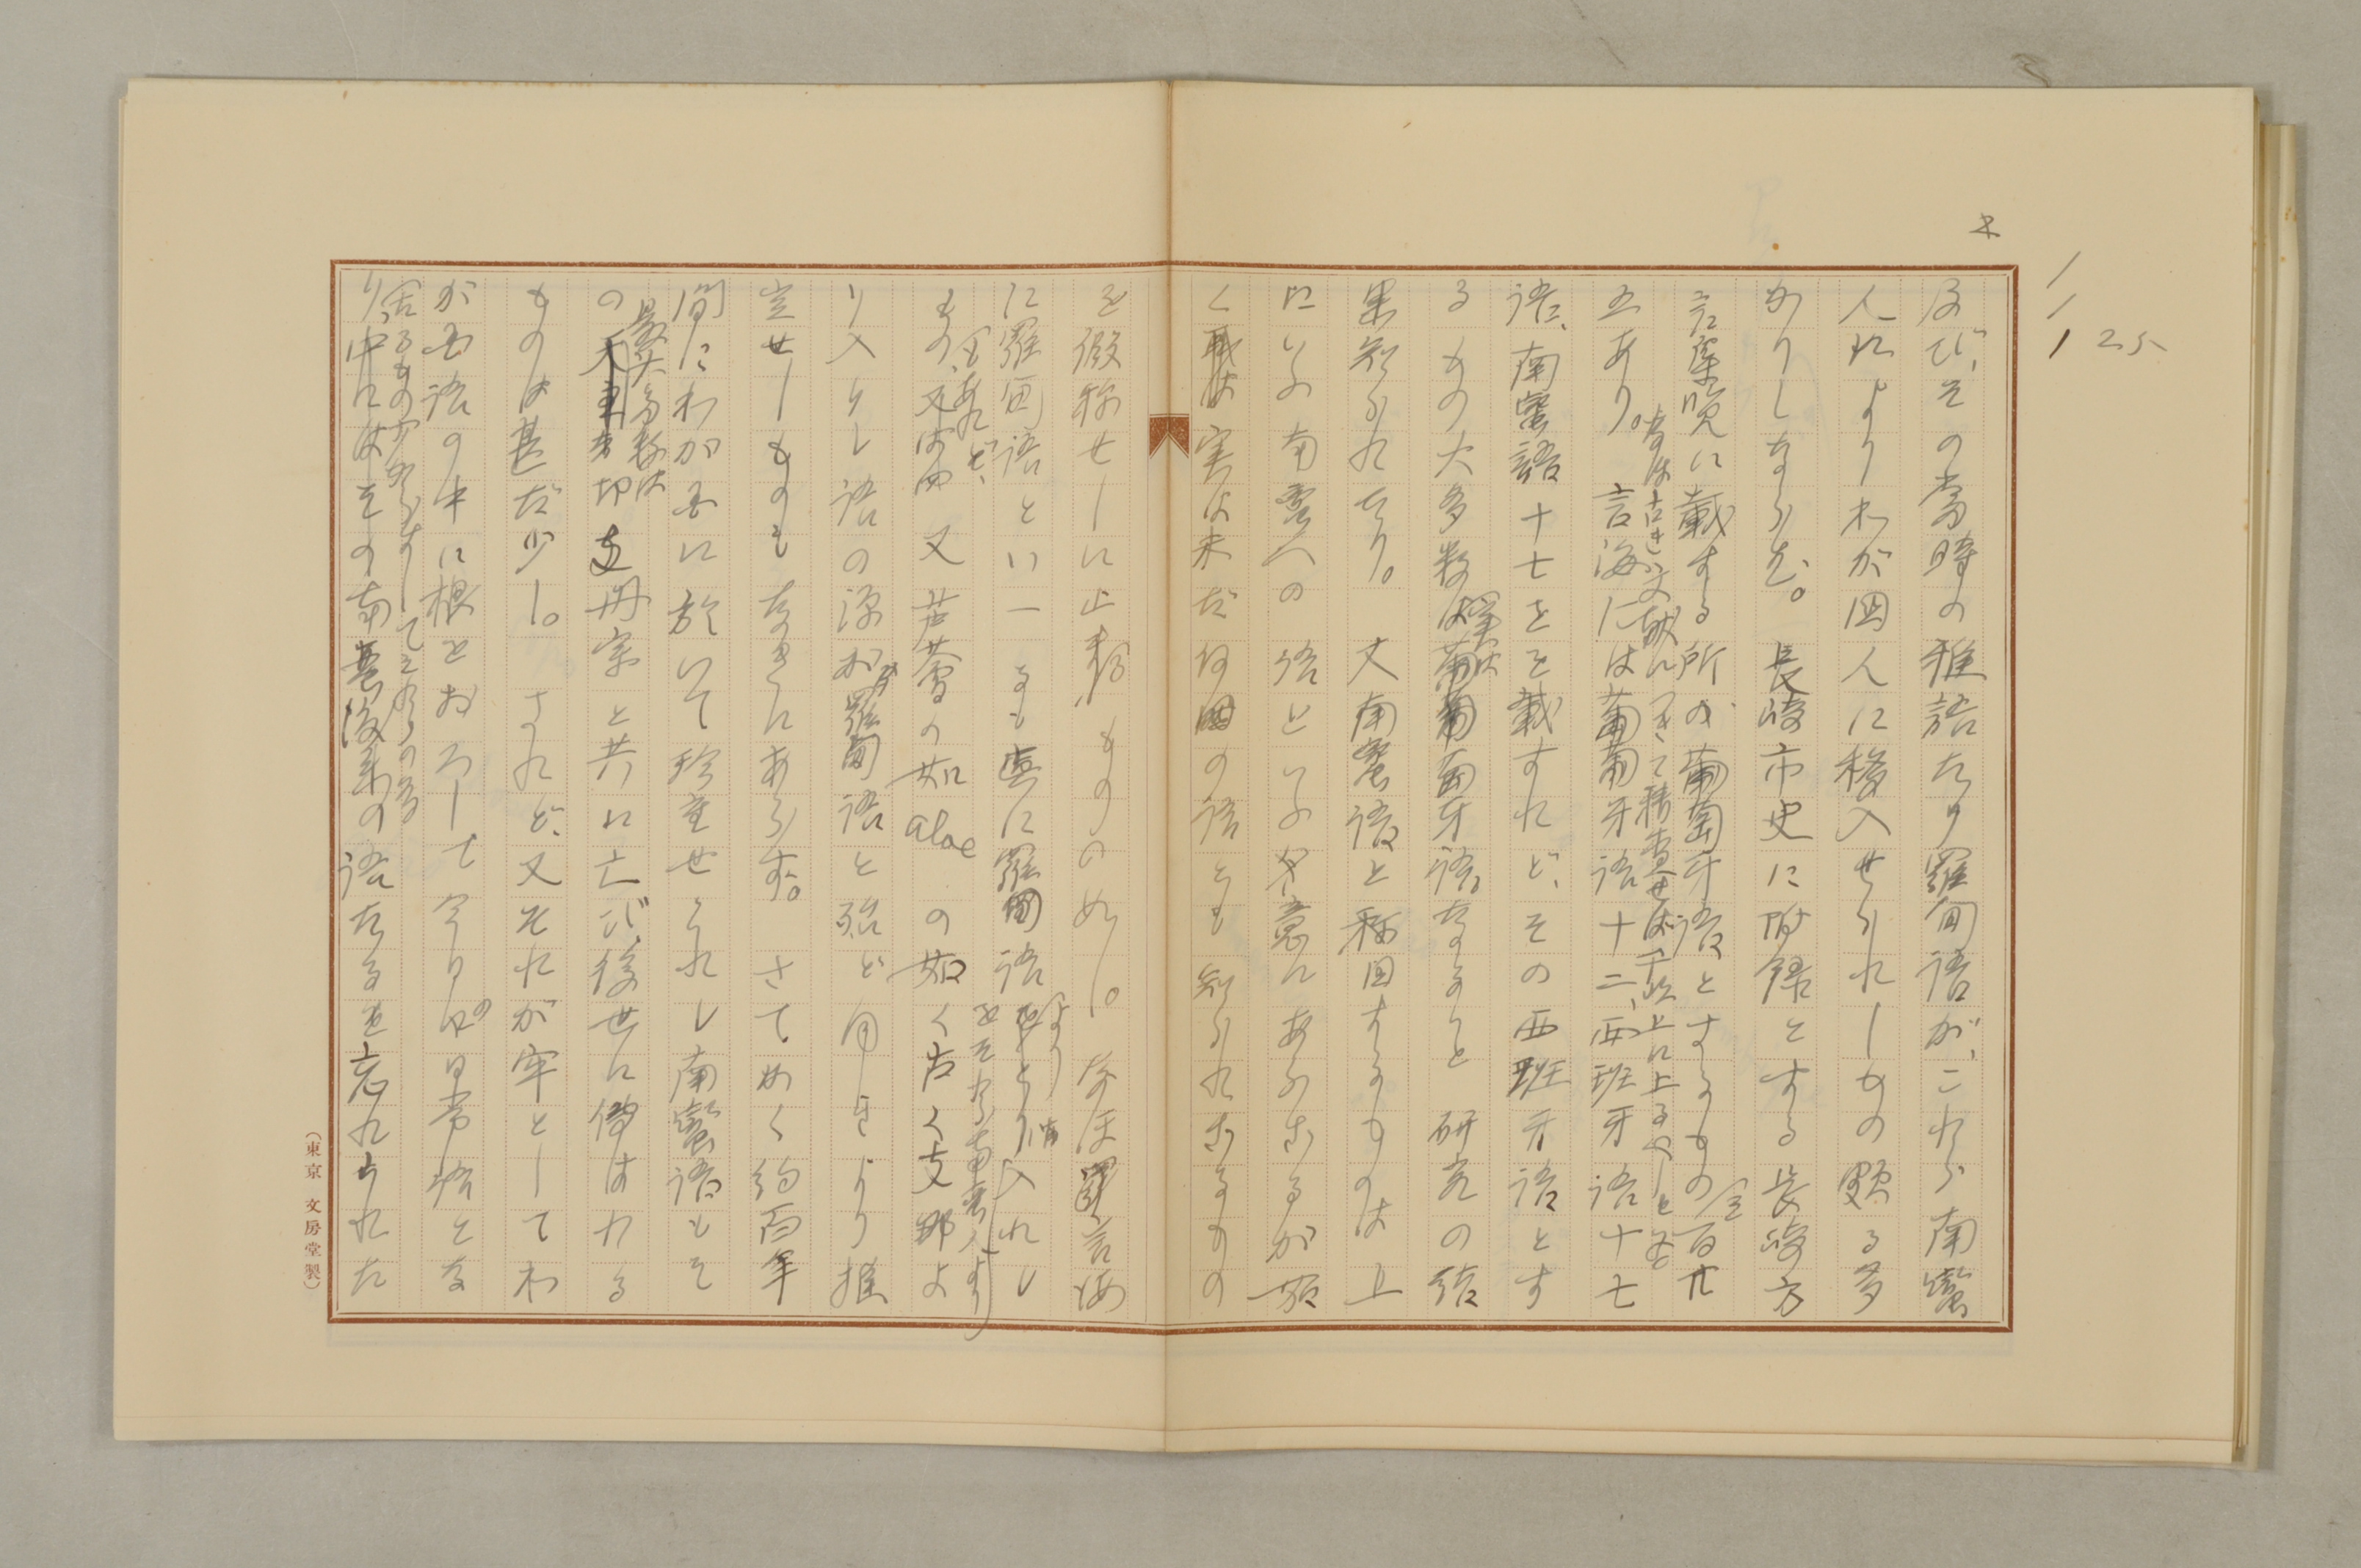 1/125
及び、その当時の雅語たり羅甸語が、これら南蛮
人によりわが国人に移入せられしもの頗る多
かりしならむ。長崎市史に附録とする長崎方
言集覧に載する所の葡萄牙語とするもの百廿
五あり。言海には葡萄牙語十二、西班牙語十七
なほ古き文献につきて精査せば千以上に上るべしと
語、南蛮語十七をを載すれど、その西班牙語とす
るもの大多数は実は葡萄牙語なること研究の結
果知られたり。又南蛮語と称回するものは上
にいふ南蛮人の語といふ意にあらざるが如
く実は未だ何国の語とも知られざるもの
を仮称せしに止るものの如し。なほ言海
に羅甸語といへるも真に羅甸語よりとり入れし
もあれど、
もの、又芦薈の如aloeの如く古く支那よ
り入りし語の源が羅甸語と殆ど同じきより推
定せしものもなきにあらず。さてかく約百年
間にわが国に於いて珍重せられし南蛮語もそ
の最大多数は切支丹宗と共に亡び、後世に伝はれる
ものは甚だ少し。されど、又それが牢としてわ
が国語の中に根をおろして今日の日常語とな
り、中にはその南蛮渡来の語たるを忘れられた
居るもの少からずして
(東京 文房堂製)